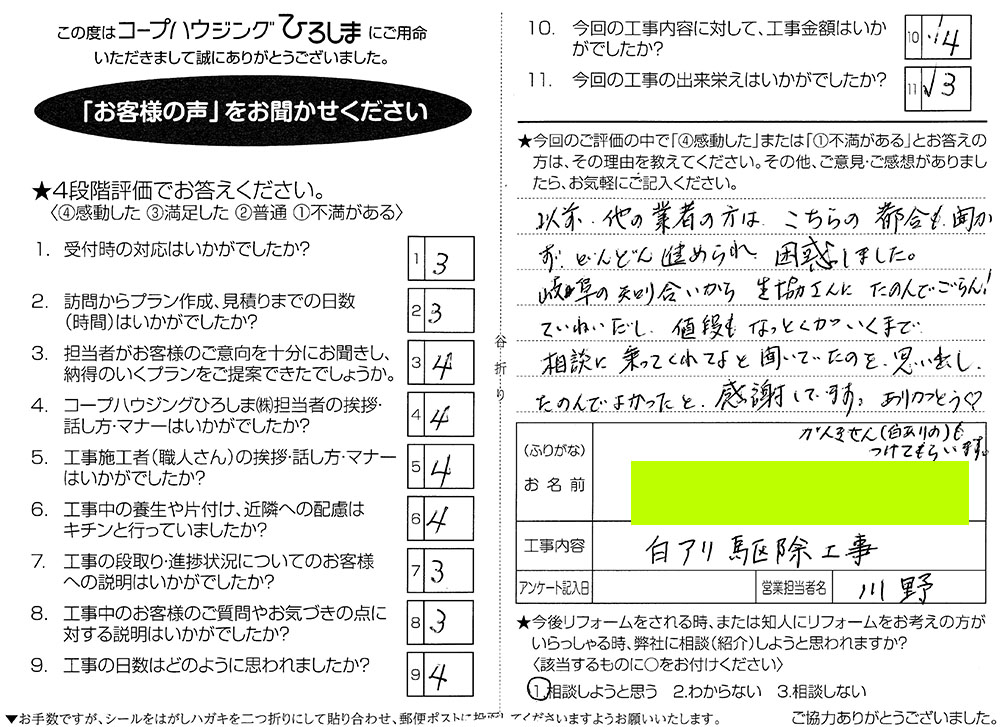 この度はコープハウジングひろしまにご用命
いただきまして誠にありがとうございました。
「お客様の声」をお聞かせください
★4段階評価でお答えください。
〈④感動した ③満足した ②普通 ①不満がある〉
1. 受付時の対応はいかがでしたか?
1 3
2. 訪問からプラン作成、見積りまでの日数
(時間)はいかがでしたか?
2 3
3. 担当者がお客様のご意向を十分にお聞きし、
納得のいくプランをご提案できたでしょうか。
3 4
4. コープハウジングひろしま㈱担当者の挨拶・
話し方・マナーはいかがでしたか?
4 4
5. 工事施工者(職人さん)の挨拶・話し方・マナー
はいかがでしたか?
5 4
6. 工事中の養生や片付け、近隣への配慮は
キチンと行っていましたか?
6 4
7. 工事の段取り・進捗状況についてのお客様
への説明はいかがでしたか?
7 3
8. 工事中のお客様のご質問やお気づきの点に
対する説明はいかがでしたか?
8 3
9. 工事の日数はどのように思われましたか?
9 4
▼お手数ですが、シールをはがしハガキを二つ折りにして貼り合わせ、郵便ポストに投函してくださいますようお願いいたします。
谷折り
10. 今回の工事内容に対して、工事金額はいか
がでしたか?
10 4
11. 今回の工事の出来栄えはいかがでしたか?
11 √3
★今回のご評価の中で「④感動した」または「①不満がある」とお答えの
方は、その理由を教えてください。その他、ご意見・ご感想がありまし
たら、お気軽にご記入ください。
以前、他の業者の方は こちらの都合も聞か
ず、どんどん進められ 困惑しました。
岐阜の知り合いから 生協さんに たのんでごらん!
ていねいだし、値段も なっとくがいくまで
相談に乗ってくれてよと聞いていたのを、思い出し
たのんでよかったと、感謝してます。ありがとう♡
がんません(白ありの)も
つけてもらいます。
(ふりがな)
お名前
工事内容
白アリ駆除工事
アンケート記入日
営業担当者名
川野
★今後リフォームをされる時、または知人にリフォームをお考えの方が
いらっしゃる時、弊社に相談(紹介)しようと思われますか?
〈該当するものに○をお付けください〉
1.相談しようと思う 2.わからない 3.相談しない
ご協力ありがとうございました。